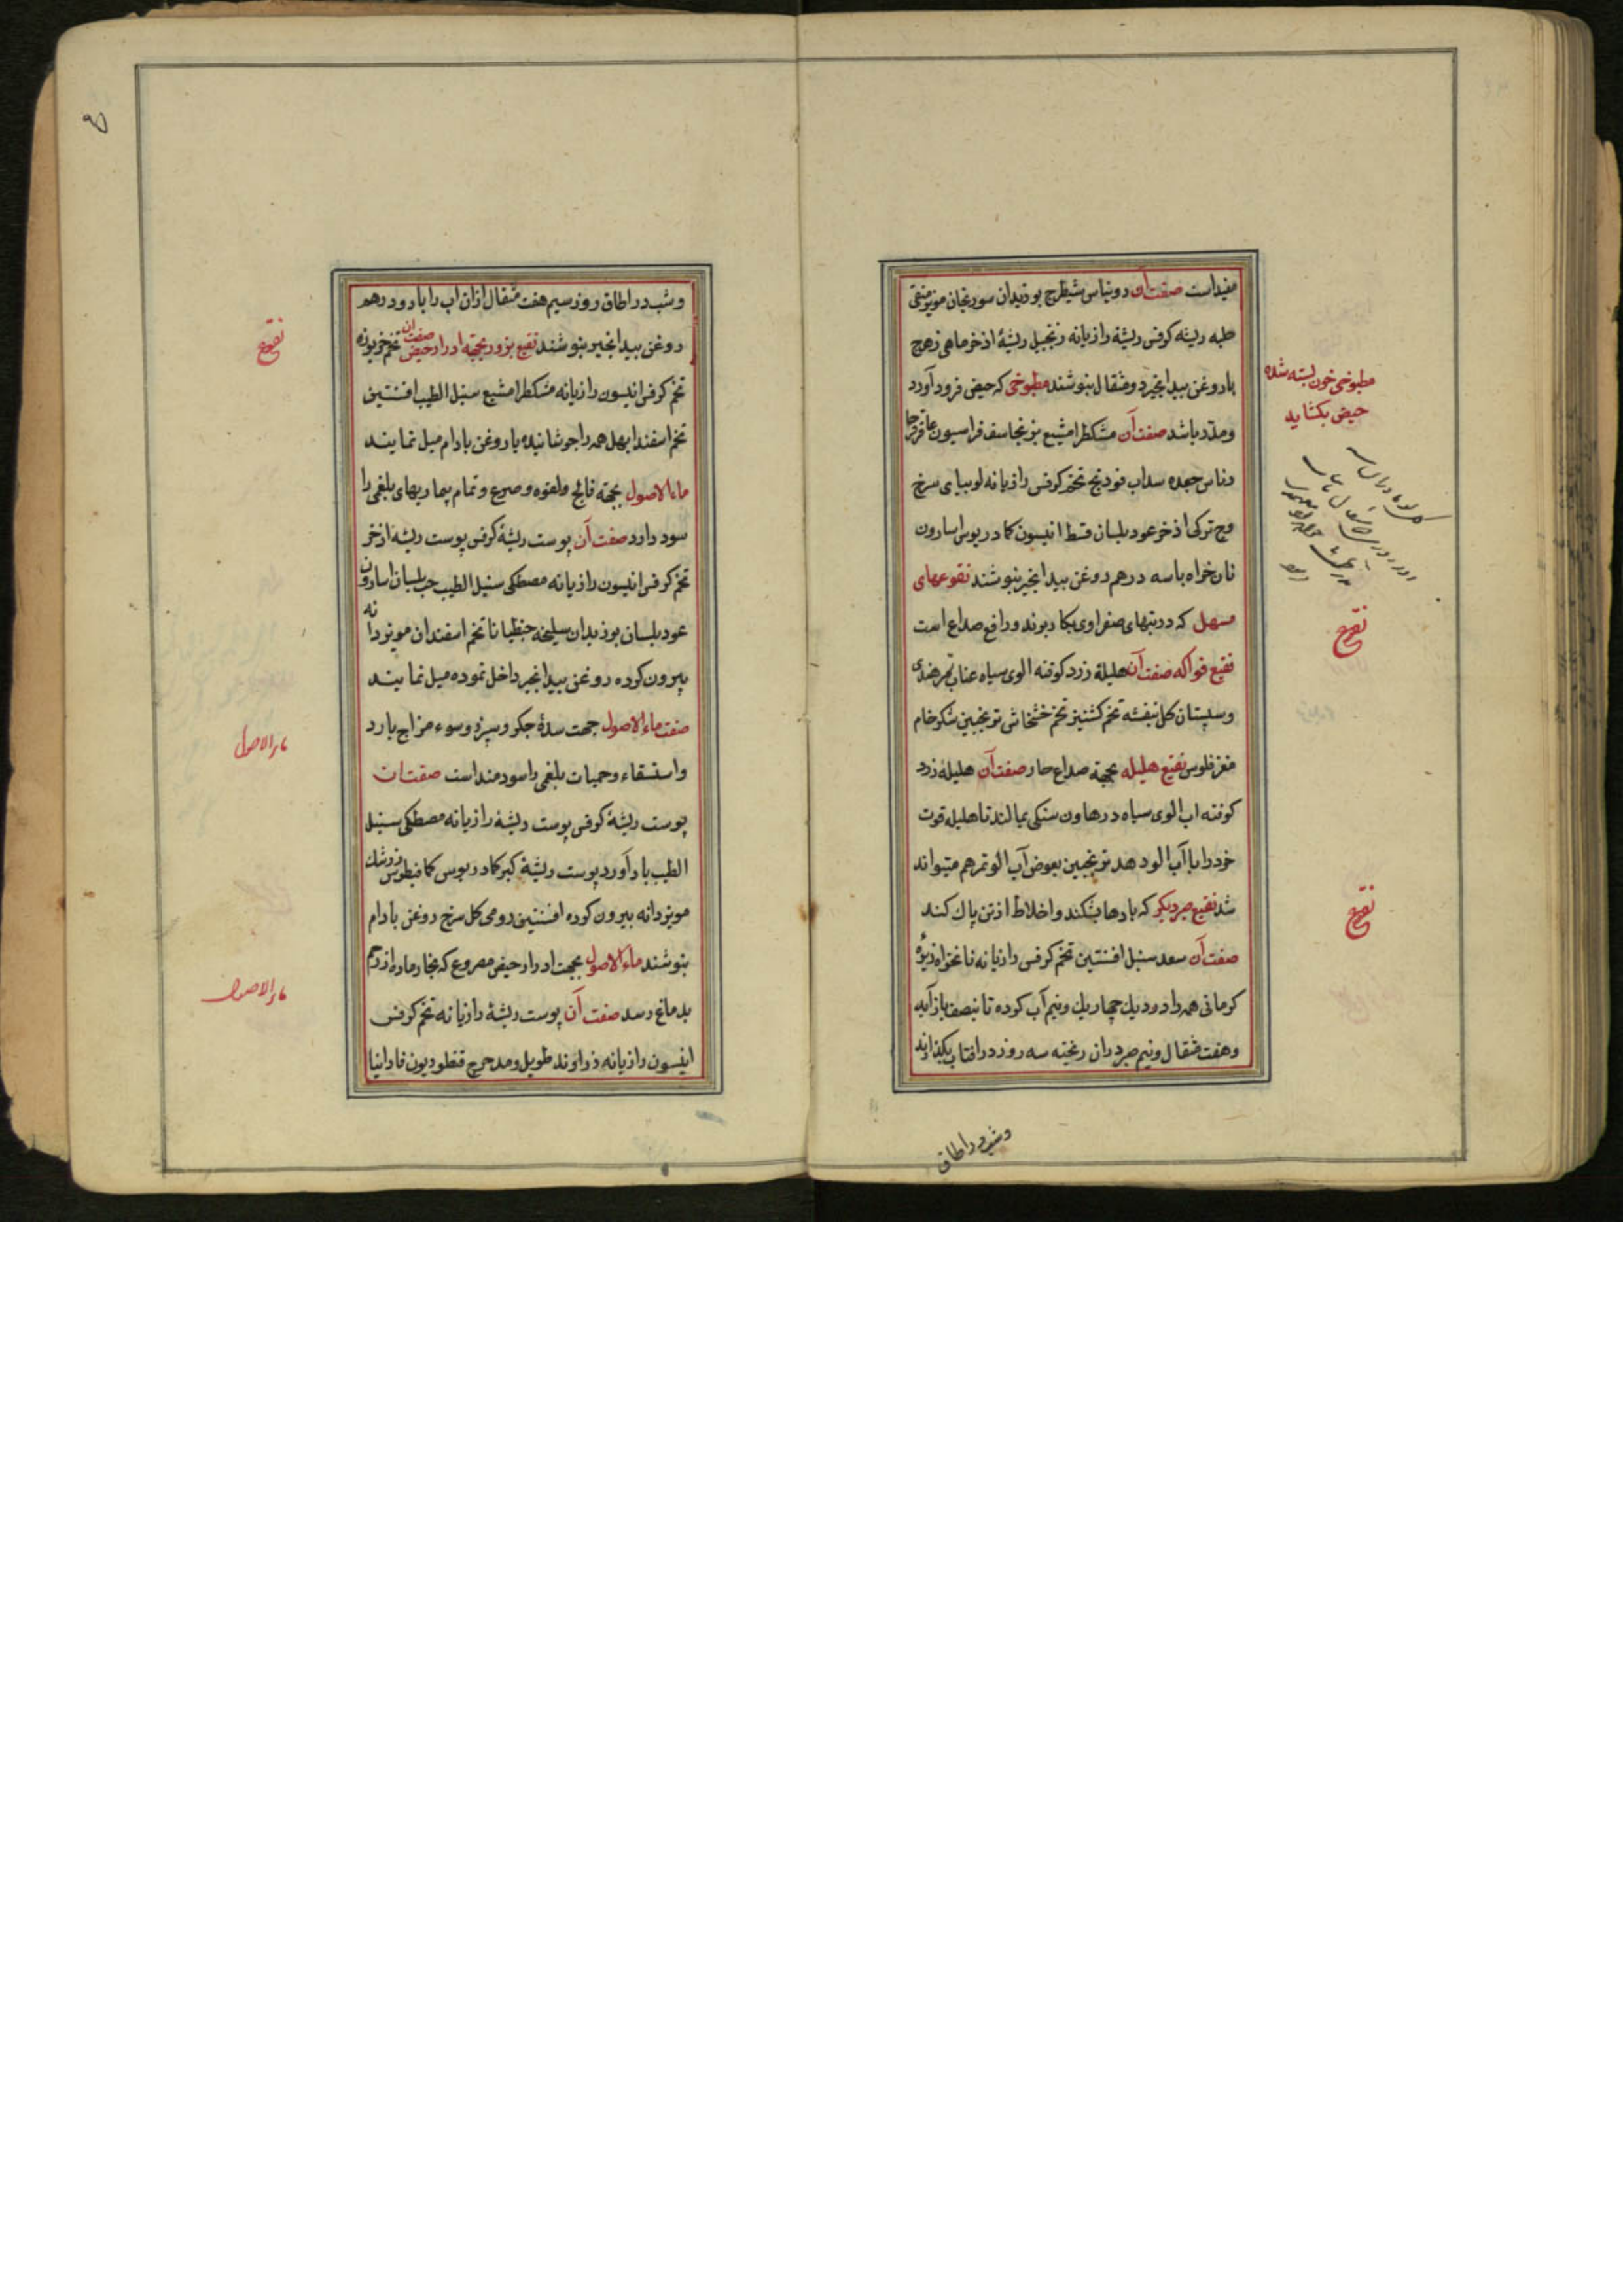 مفیداست صفت آن دوبناس شیطرج بوزیدان سورنجان مویز منقی
حلبه ریشه کرفس ریشهٔ رازیانه زنجبیل ریشهٔ اذخر ماهی زهرج
باروغن بیدانجیر دومثقال بنوشند مطبوخی که حیض فرود آورد
ومدر باشد صفت آن مشکطرامشیع برنجاسف فراسیون عاقرقرحا
وناس جعده سداب فودنج تخم کرفس رازیانه لوبیای سرخ
وج ترکی اذخر عود بلسان قسط انیسون کمادریوس اسارون
نان خواه باسه درهم روغن بیدانجیر بنوشند نقوعهای
مسهل که در تبهای صفراوی بکار برند ورافع صداع است
نقیع فواکه صفت آن هلیلهٔ زرد کوفته الوی سیاه عناب تمر هندی
وسپستان کل بنفشه تخم کشنیز تخم خشخاش ترنجبین شکر خام
مغز فلوس نقیع هلیله بجهة صداع حار صفت آن هلیله زرد
کوفته اب الوی سیاه در هاون سنکی بمالند تا هلیله قوت
خود را باآب الو دهد ترنجبین بعوض آب الو تمر هم میتواند
شد نقیع صبر دیکر که بادها بشکند واخلاط از تن پاک کند
صفت آن سعد سنبل افسنتین تخم کرفس رازیانه نانخواه زیرهٔ
کرمانی همه را در دیک چهار یک ونیم آب کرده تا بنصف باز آید
وهفت مثقال ونیم صبر دران ریخته سه روز در افتاب بگذارند
وشب در اطاق
مطبوخی خون بسته شده
حیض بکشاید
نقوع
نقوع
وشب در اطاق روز سیم هفت مثقال ازان اب را بادو درهم
روغن بیدانجیر بنوشند نقیع بزور بجهة ادرار حیض صفت ان تخم خربوزه
تخم کرفس انیسون رازیانه مشکطرامشیع سنبل الطیب افسنتین
تخم اسفند ابهل همه را جوشانیده باروغن بادام میل نمایند
ماء الاصول بجهة فالج ولقوه وصرع وتمام بیماریهای بلغمی را
سود دارد صفت آن پوست ریشهٔ کرفس پوست ریشه اذخر
تخم کرفس انیسون رازیانه مصطکی سنبل الطیب حب بلسان اسارون
عود بلسان بوزیدان سلیخه جنطیانا تخم اسفندان مویز دانه
بیرون کرده روغن بیدانجیر داخل نموده میل نمایند
صفت ماء الاصول جهت سدهٔ جکر وسپرز وسوء مزاج بارد
واستسقاء وحمیات بلغمی را سودمند است صفت ان
پوست ریشهٔ کرفس پوست ریشهٔ رازیانه مصطکی سنبل
الطیب باد آورد پوست ریشهٔ کبر کمادریوس کمافیطوس زرشک
مویز دانه بیرون کرده افسنتین رومی کل سرخ روغن بادام
بنوشند ماء الاصول بجهت ادرار حیض مصروع که بخار ماده از رحم
بدماغ رسد صفت آن پوست ریشهٔ رازیانه تخم کرفس
انیسون رازیانه زراوند طویل ومدحرج قنطوریون فاوانیا
نقوع
ماء الاصول
ماء الاصول